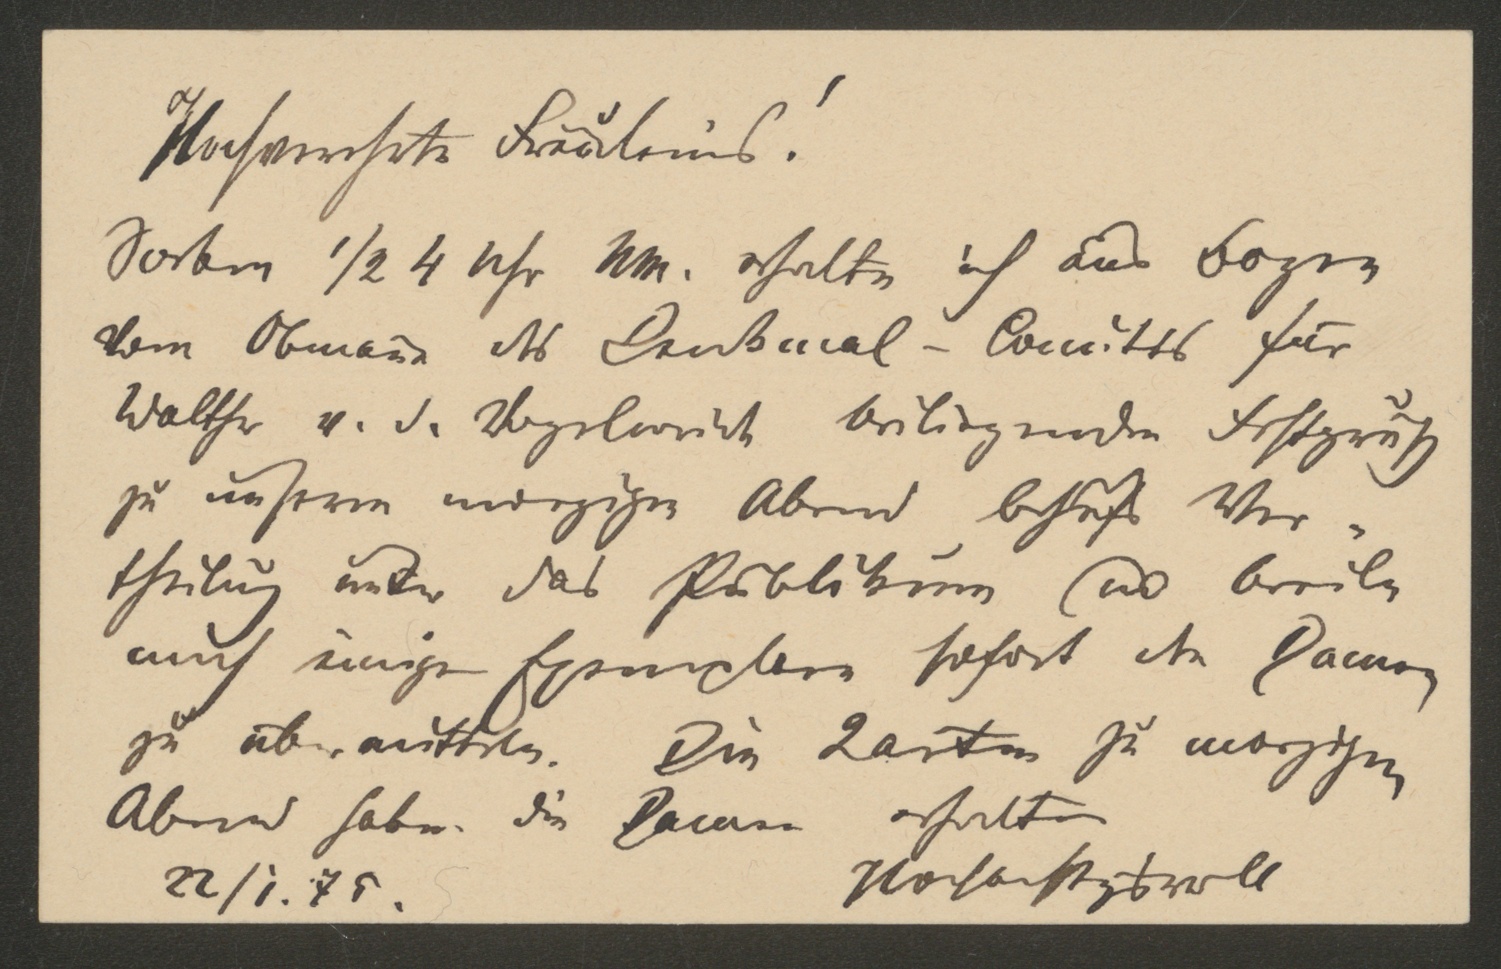 Hochverehrte Fräuleins!
Soeben 1/2 4 Uhr Nm. erhalte ich aus Bozen
vom Obmanne des Denkmal-Comités für
Walther v. d. Vogelweide beiliegenden Festgruß
zu unserem morgigen Abend behufs Ver-
theilung unter das Publikum und beeile
mich einige Exemplare sofort den Damen
zu übermitteln. Die Karten zu morgigem
Abend haben die Damen erhalten
22/1. 75. Hochachtungsvoll